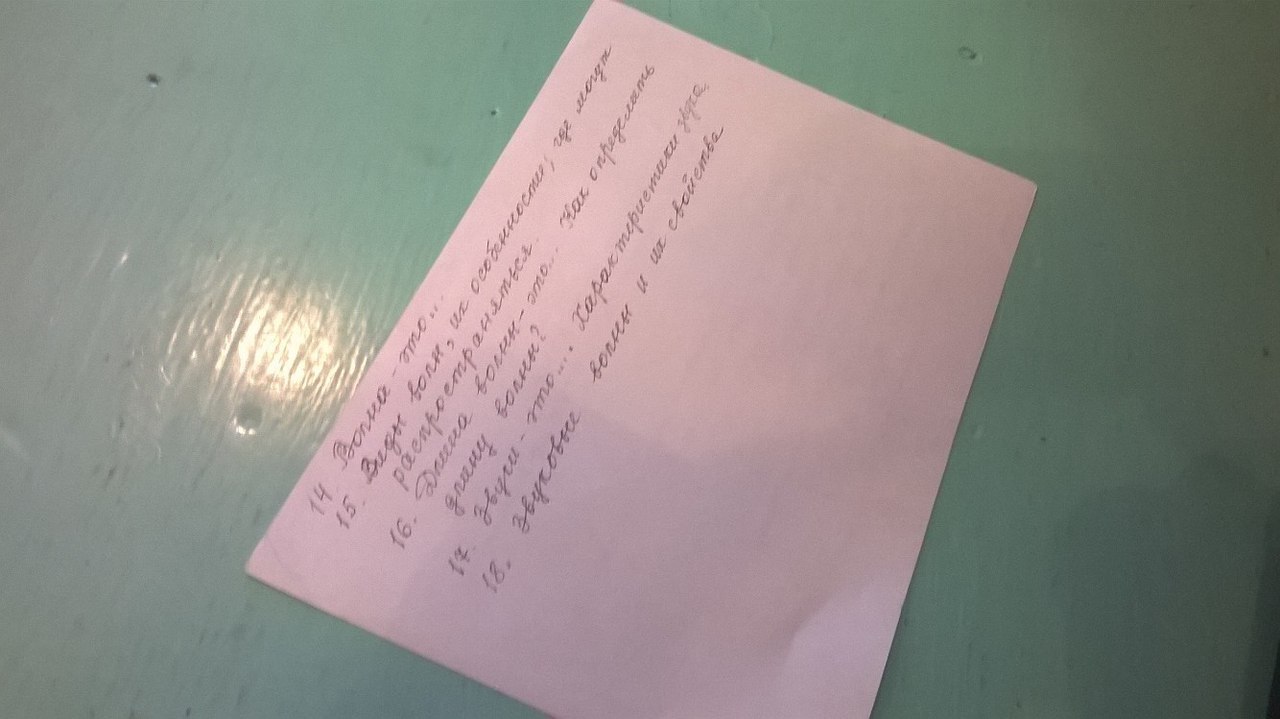 14 Волна - это...
15. Виды волн, их особенности, где могут
распространяться.
16. Длина волны - это... Как определить
длину волны?
17. Звуки - это.... Характеристики звука.
18. Звуковые волны и их свойства